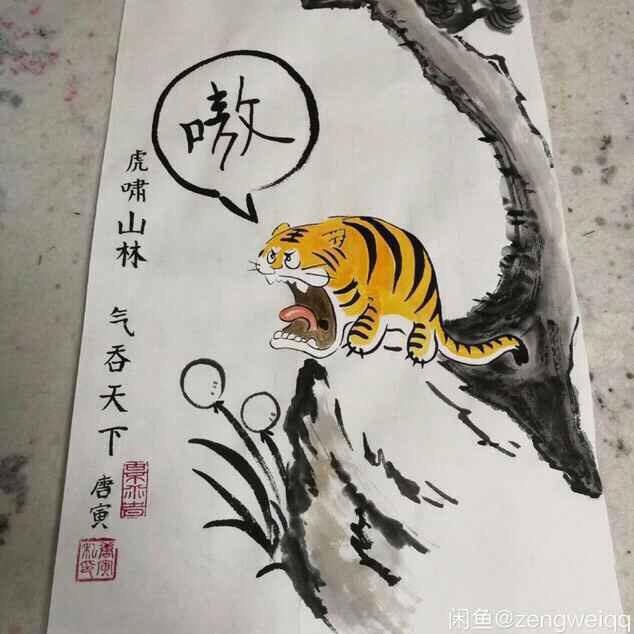 嗷
虎啸山林 气吞天下
唐寅
闲鱼@zengweiqq